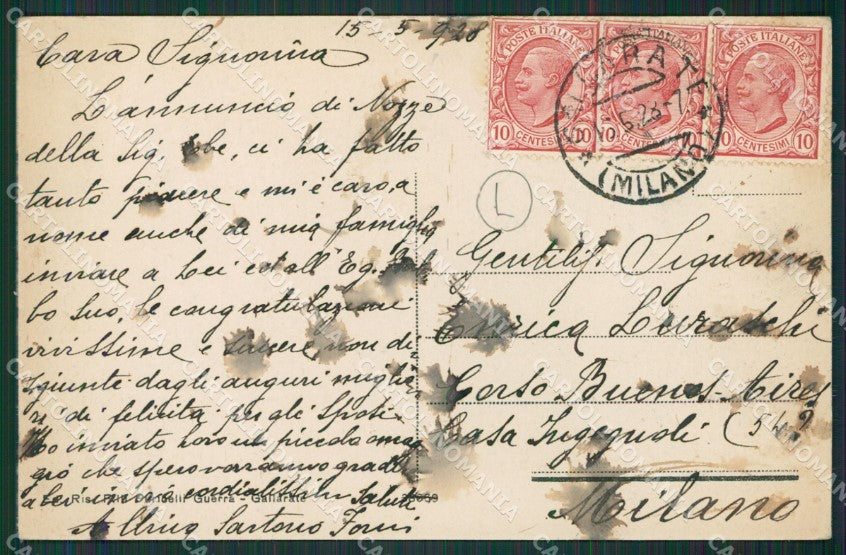 15-5-928
Cara Signorina
L'annuncio di Nozze
della Sig. Ebe, ci ha fatto
tanto piacere e mi è caro, a
nome anche di mia famiglia
inviare a Lei ed all' Eg.
bo suo, le congratulazioni
vivissime e sincere non di-
sgiunte dagli auguri miglio
ri di felicità per gli Sposi.
Ho inviato loro un piccolo omag
gio che spero vorranno gradire
a Lei invio cordialità Saluti
Sartorio
Ris. Ditta Guerra - Gallarate
POSTE ITALIANE
10 CENTESIMI 10
POSTE ITALIANE
CENTESIMI
POSTE ITALIANE
10 CENTESIMI 10
(MILANO)
L
Gentilis. Signorina
Enrica Luraschi
Corso Buenos-Aires
Casa Ingegnoli (54?
Milano
CARTOLINOMANIA